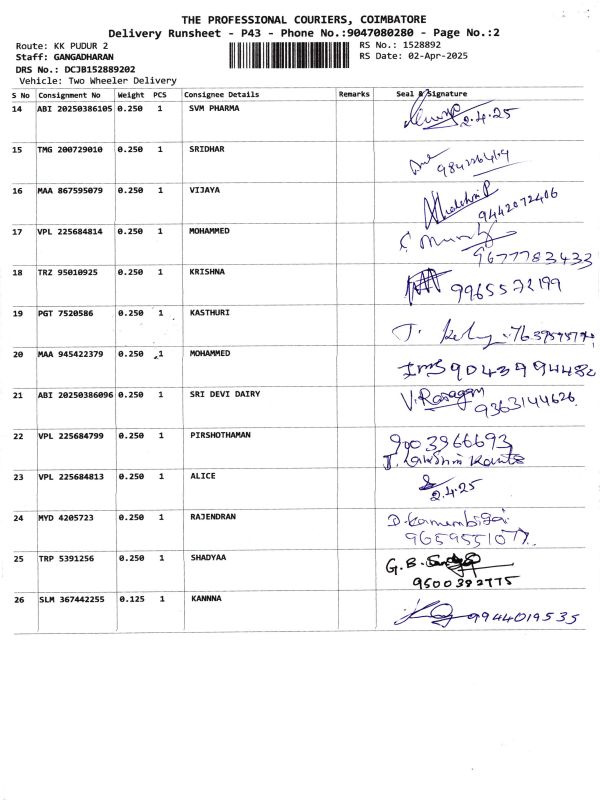 THE PROFESSIONAL COURIERS, COIMBATORE
Delivery Runsheet - P43 - Phone No.:9047080280 - Page No.:2
Route: KK PUDUR 2 RS No.: 1528892
Staff: GANGADHARAN RS Date: 02-Apr-2025
DRS No.: DCJB152889202
Vehicle: Two Wheeler Delivery
S No Consignment No Weight PCS Consignee Details Remarks Seal & Signature
14 ABI 20250386105 0.250 1 SVM PHARMA 2.4.25
15 TMG 200729010 0.250 1 SRIDHAR
16 MAA 867595079 0.250 1 VIJAYA 9442072406
17 VPL 225684814 0.250 1 MOHAMMED 9677783433
18 TRZ 95010925 0.250 1 KRISHNA 9965572199
19 PGT 7520586 0.250 1 KASTHURI
20 MAA 945422379 0.250 1 MOHAMMED 9043994482
21 ABI 20250386096 0.250 1 SRI DEVI DAIRY 9363144626
22 VPL 225684799 0.250 1 PIRSHOTHAMAN 9003966693
23 VPL 225684813 0.250 1 ALICE 2.4.25
24 MYD 4205723 0.250 1 RAJENDRAN
25 TRP 5391256 0.250 1 SHADYAA G. B.
9500382775
26 SLM 367442255 0.125 1 KANNNA 9944019535